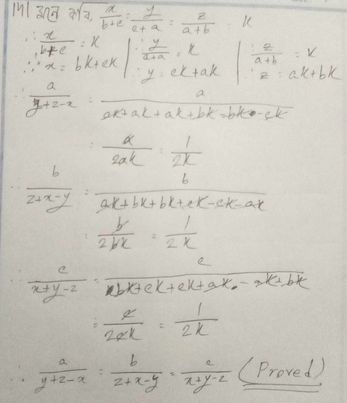 মনে করি, x/b+c = y/c+a = z/a+b = k
∴ x/b+c = k | ∴ y/c+a = k | ∴ z/a+b = k
∴ x = bk+ck | ∴ y = ck+ak | ∴ z = ak+bk
∴ a/y+z-x = a/ck+ak+ak+bk-bk-ck
= a/2ak = 1/2k
∴ b/z+x-y = b/ak+bk+bk+ck-ck-ak
= b/2bk = 1/2k
∴ c/x+y-z = c/bk+ck+ck+ak-ak+bk
= c/2ck = 1/2k
∴ a/y+z-x = b/z+x-y = c/x+y-z (Proved)